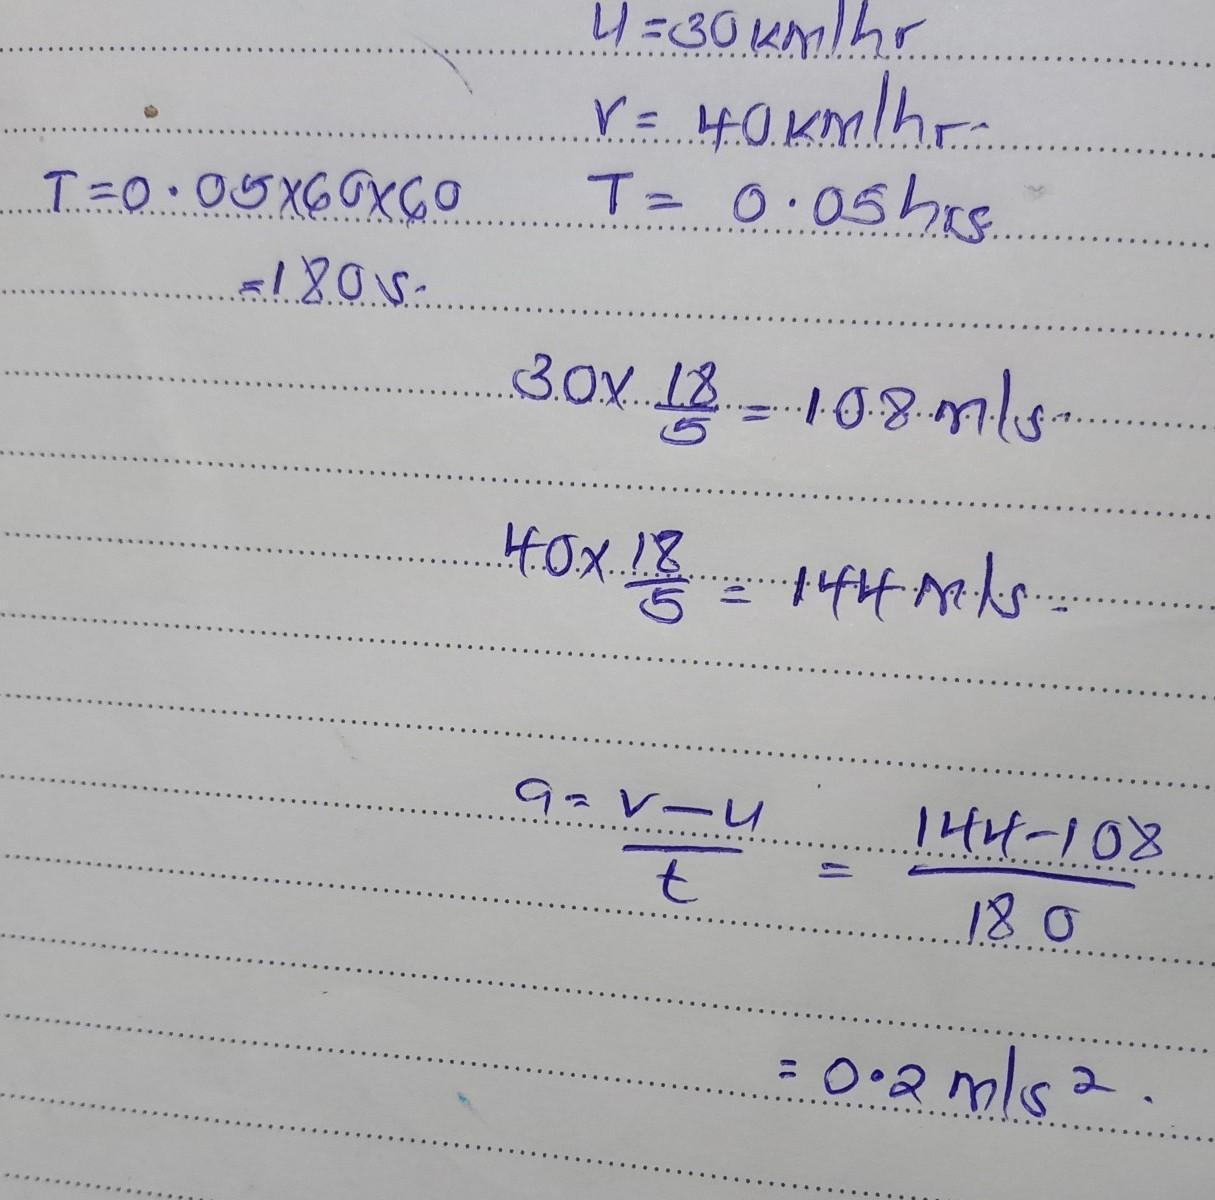 u = 30 km/hr
v = 40 km/hr.
T = 0.05 x 60 x 60 T = 0.05 hrs
= 180 s.
30 x 18/5 = 108 m/s.
40 x 18/5 = 144 m/s.
a = v - u / t = 144 - 108 / 180
= 0.2 m/s².